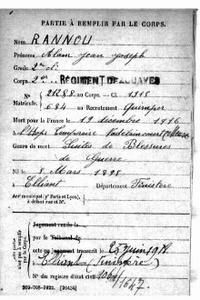 PARTIE À REMPLIR PAR LE CORPS.
Nom RANNOU
Prénoms Alain Jean Joseph
Grade 2e cl
Corps 2me RÉGIMENT DE ZOUAVES
No 28288 au Corps. — Cl. 1918
Matricule. 684 au Recrutement Quimper
Mort pour la France le 19 décembre 1916
à l'Hôp. temporaire Vadelaincourt Meuse
Genre de mort Suites de Blessures
de Guerre
Né le Mars 1898
à Elliant Département Finistère
Arr municipal (pr Paris et Lyon),
à défaut rue et No.
Jugement rendu le
par le Tribunal de
acte ou jugement transcrit le 25 juin 1917
à Elliant (Finistère)
No du registre d'état civil